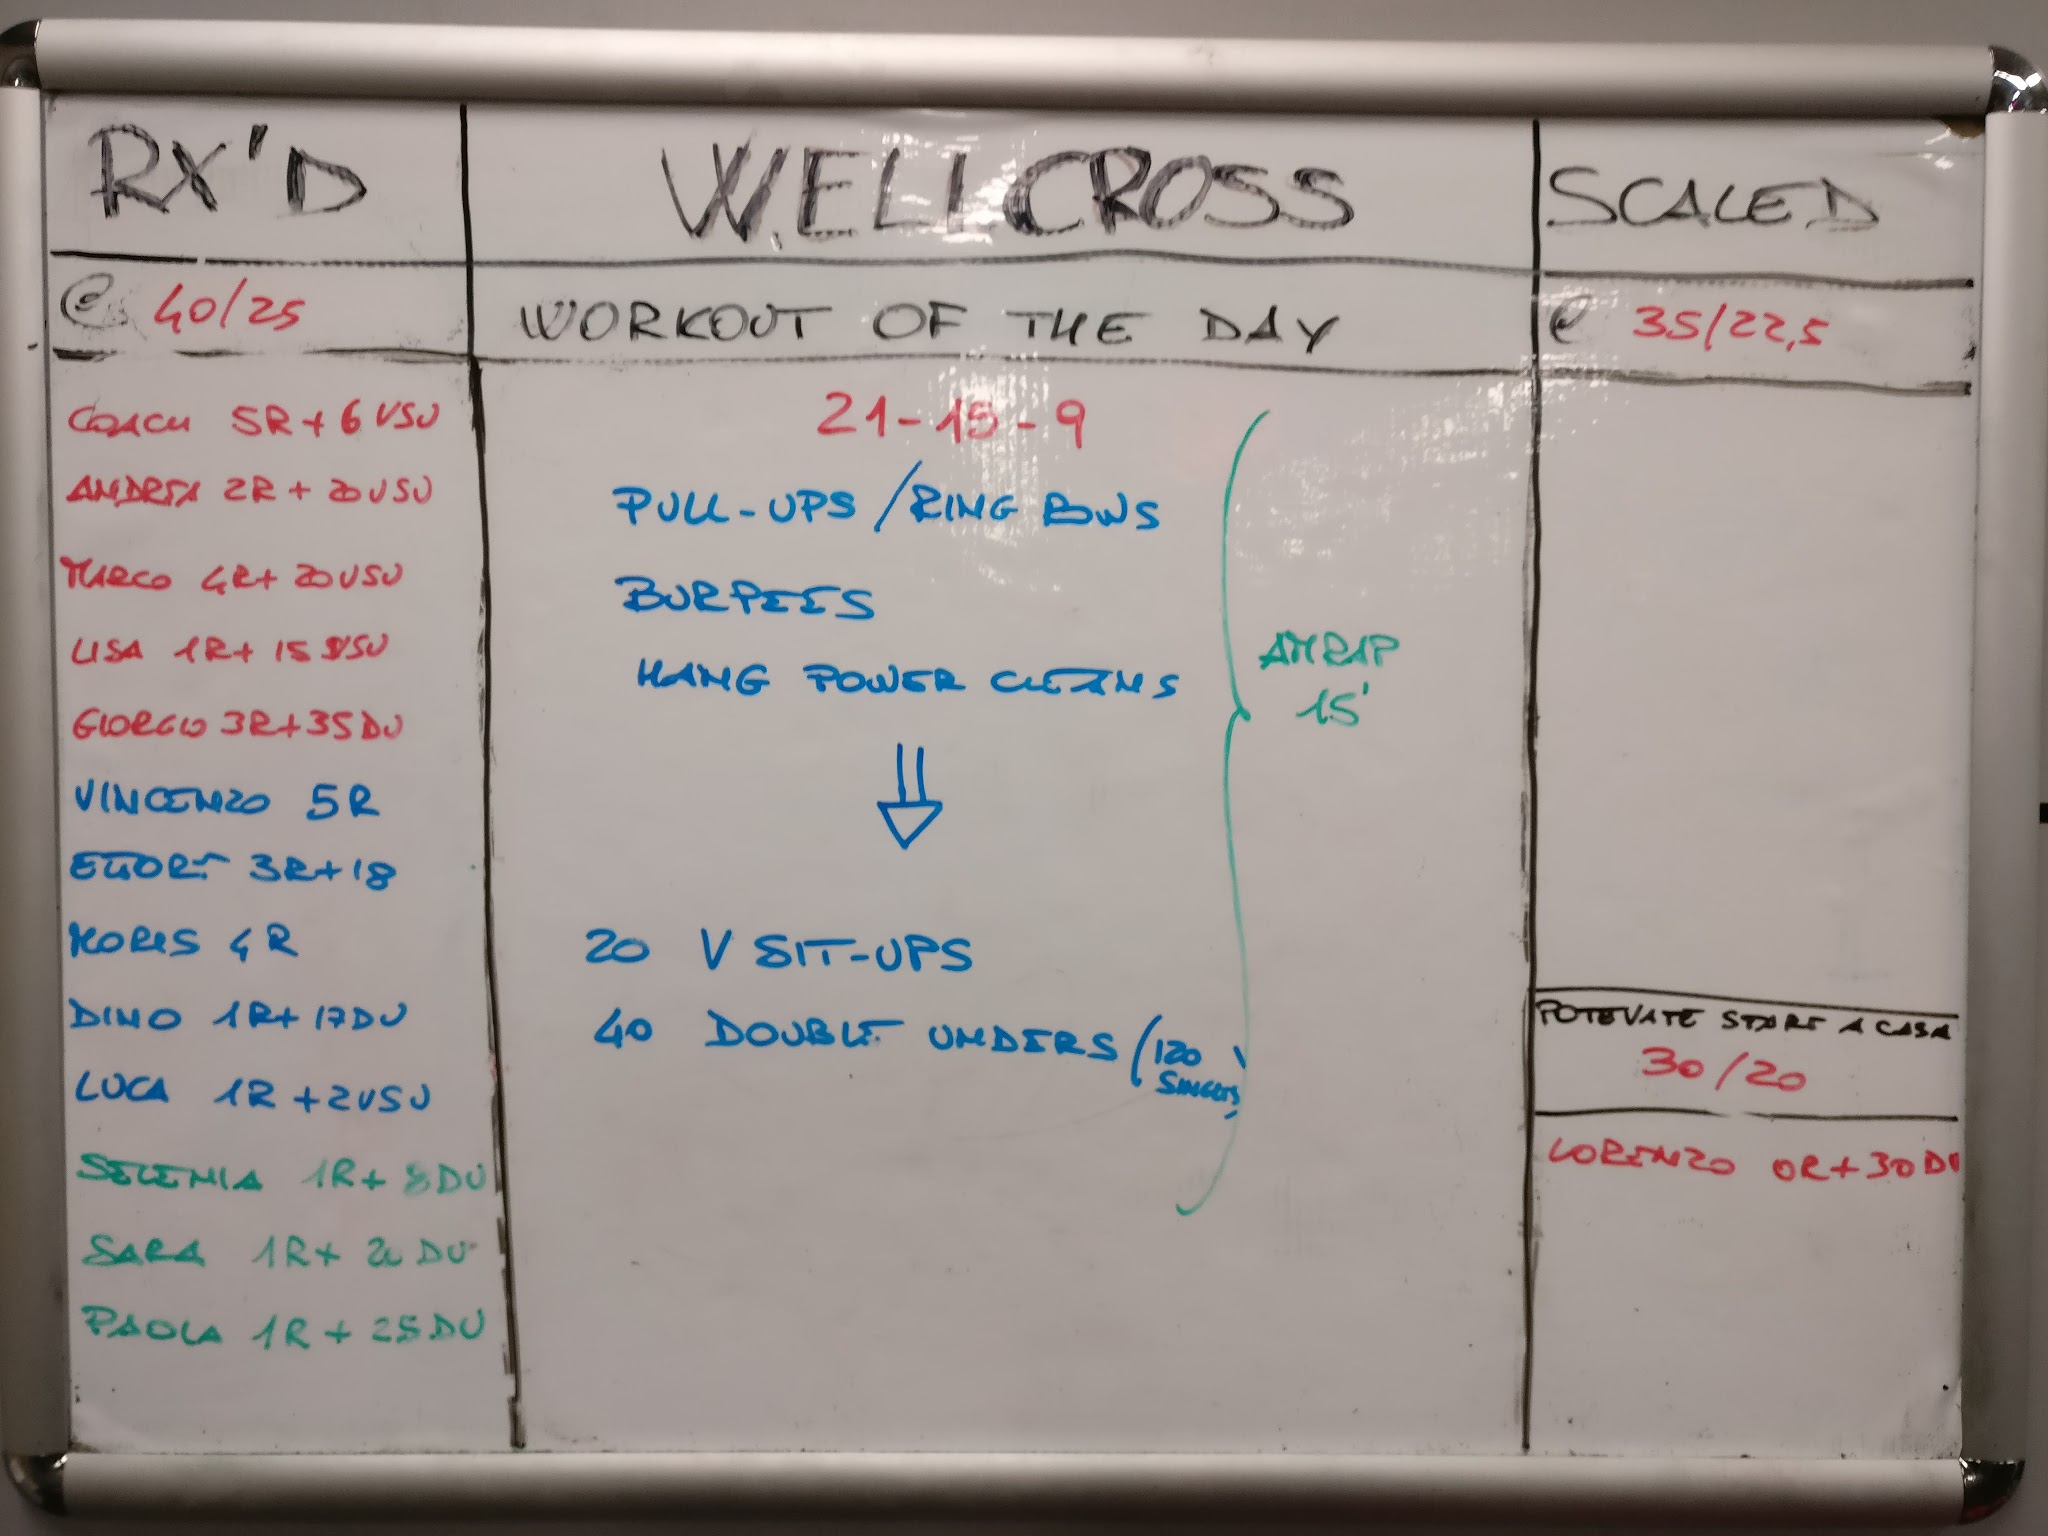 RX'D
@ 40/25
COACH 5R + 6 VSU
ANDREA 2R + 20 VSU
MARCO 4R + 20 VSU
LISA 1R + 15 VSU
GIORGIO 3R + 35 DU
VINCENZO 5R
ETTORE 3R + 18
MORIS 4R
DINO 1R + 17 DU
LUCA 1R + 2 VSU
SELENIA 1R + 8 DU
SARA 1R + DU
PAOLA 1R + 25 DU
WELLCROSS
WORKOUT OF THE DAY
21 - 15 - 9
PULL-UPS / RING ROWS
BURPEES
HANG POWER CLEANS
20 V SIT-UPS
40 DOUBLE UNDERS (120
SINGLES)
AMRAP
15'
SCALED
@ 35/22,5
POTEVATE START A CASA
30/20
LORENZO 0R + 30 DU